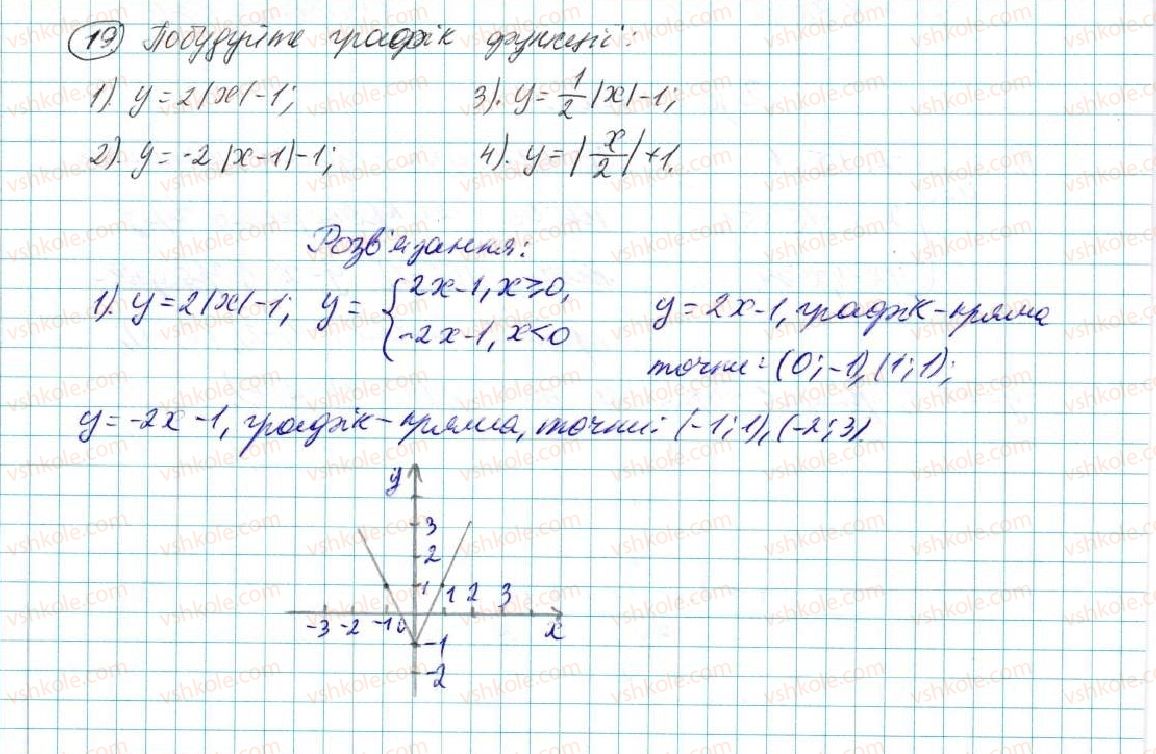 19) Побудуйте графік функції:
1). y = 2|x| - 1; 3). y = 1/2 |x| - 1;
2). y = -2|x-1| - 1; 4). y = |x/2| + 1.
Розв'язання:
1). y = 2|x| - 1; y = { 2x-1, x ≥ 0, -2x-1, x < 0 y = 2x-1, графік - пряма
точки: (0; -1), (1; 1);
y = -2x - 1, графік - пряма, точки: (-1; 1), (-2; 3).
y
3
2
1 1 2 3
-3 -2 -1 0 x
-1
-2
vshkole.com